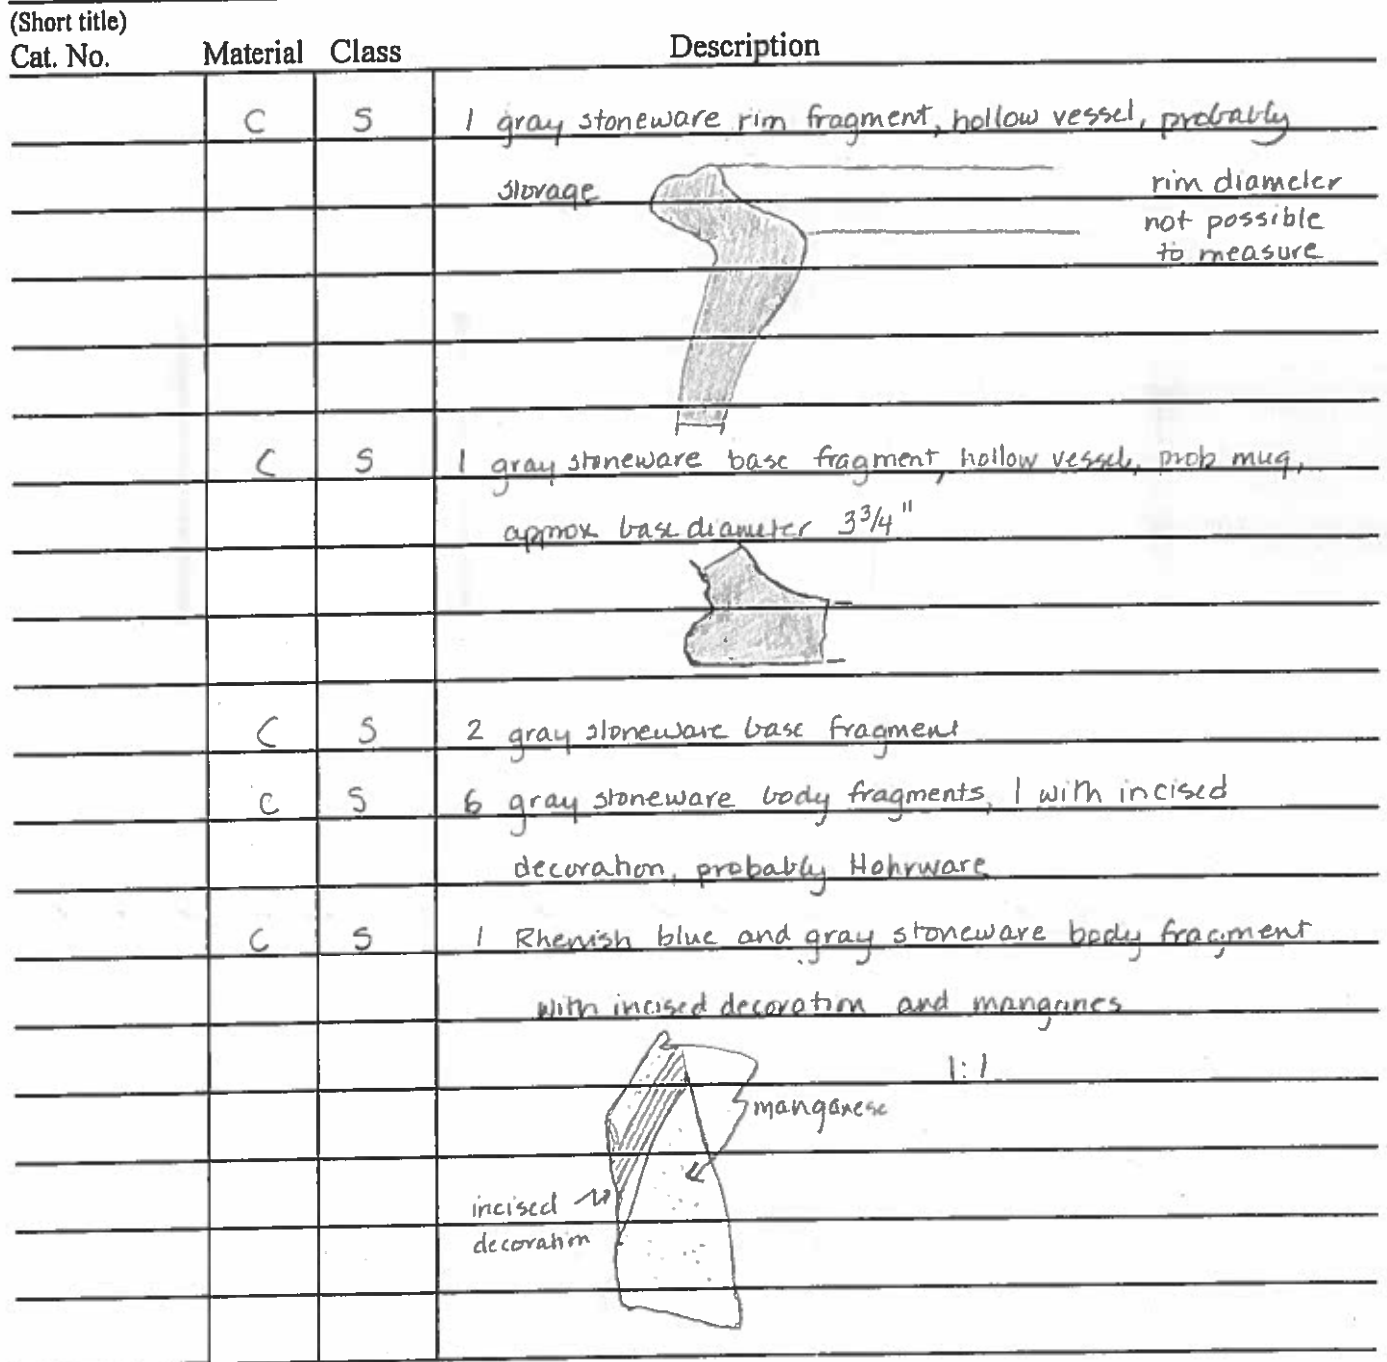 (Short title)
Cat. No. Material Class Description
C S 1 gray stoneware rim fragment, hollow vessel, probably
storage
rim diameter
not possible
to measure
C S 1 gray stoneware base fragment, hollow vessel, prob mug,
approx base diameter 3 3/4"
C S 2 gray stoneware base fragment
C S 6 gray stoneware body fragments, 1 with incised
decoration, probably Hohrware
C S 1 Rhenish blue and gray stoneware body fragment
with incised decoration and mangines
1:1
manganese
incised
decoration